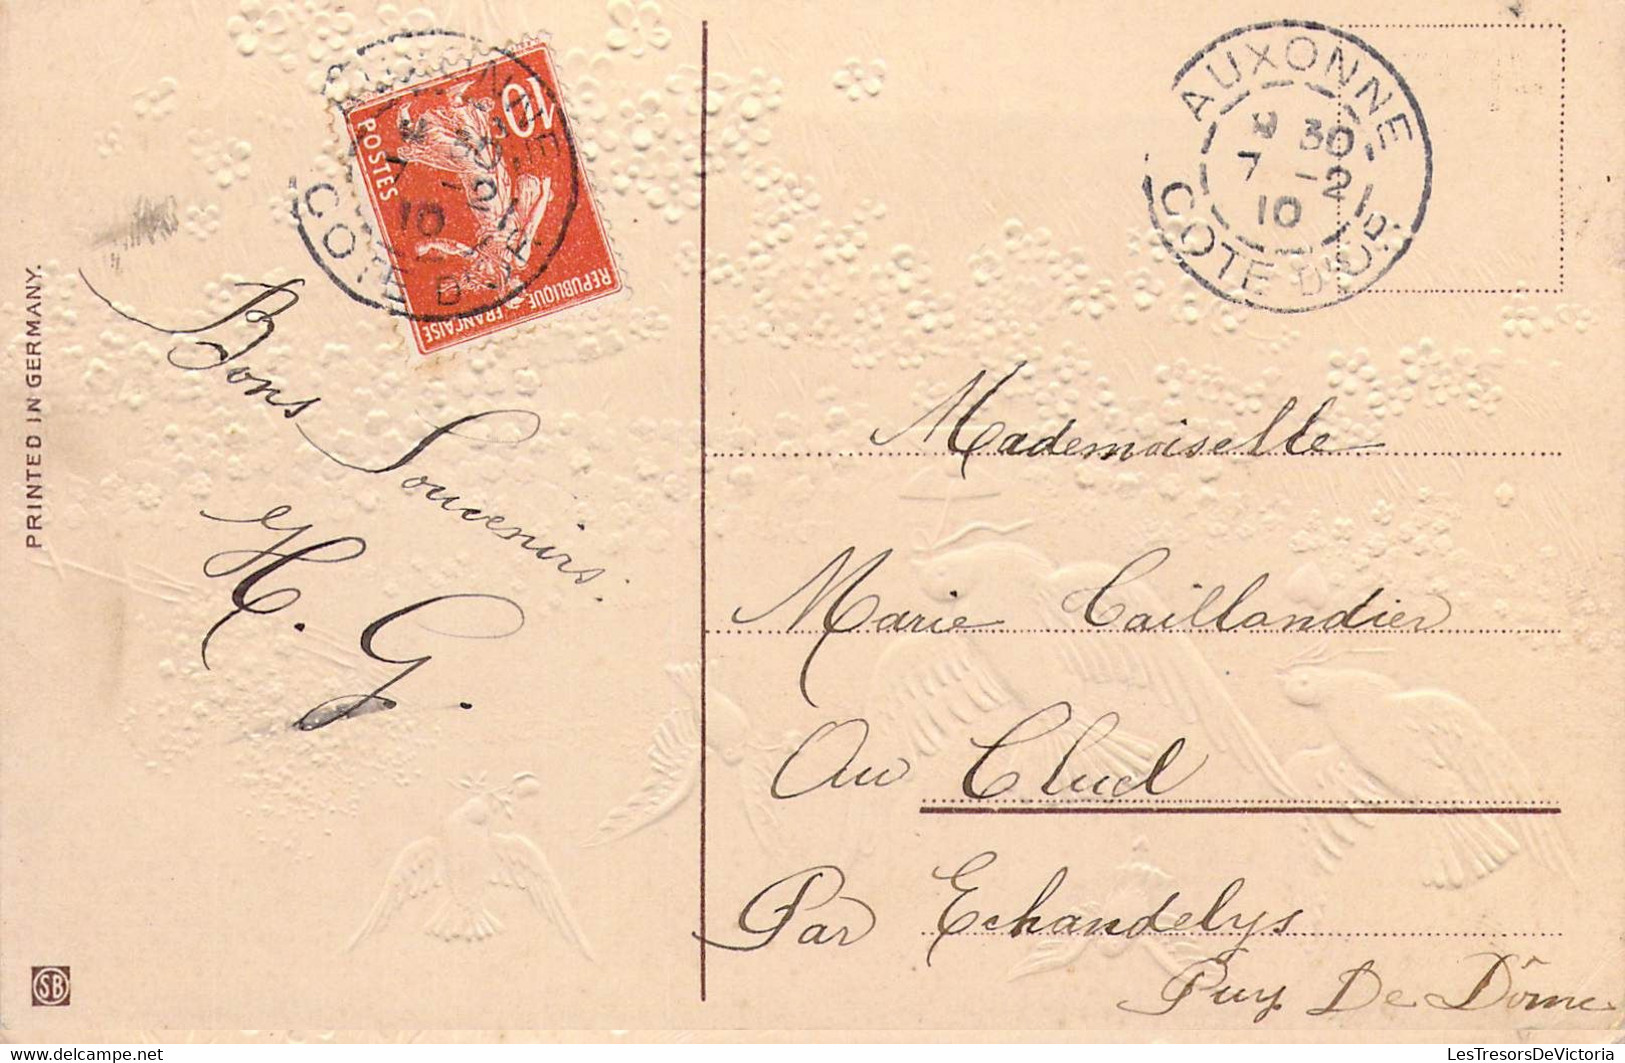 PRINTED IN GERMANY.
10
POSTES
REPUBLIQUE FRANÇAISE
COTE D'OR
AUXONNE
9 30
7 -2
10
COTE D'OR
Bons Souvenirs.
H. G.
Mademoiselle
Marie Taillandier
Au Clud
Par Echandelys
Puy De Dôme
SB
LesTresorsDeVictoria